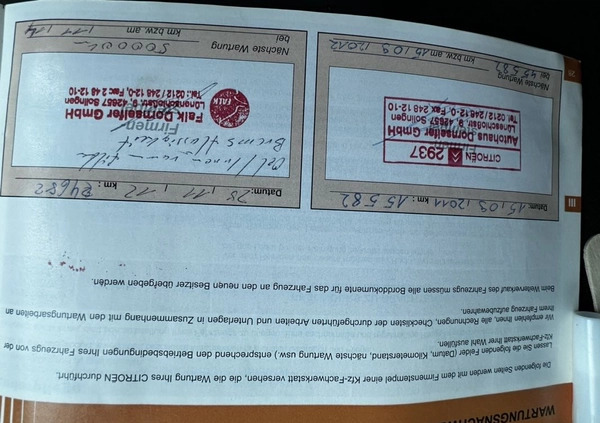 WARTUNGSNACHW
Die folgenden Seiten werden mit dem Firmenstempel einer Kfz-Fachwerkstatt versehen, die die Wartung Ihres CITROËN durchführt.
Lassen Sie die folgenden Felder (Datum, Kilometerstand, nächste Wartung usw.) entsprechend den Betriebsbedingungen Ihres Fahrzeugs von der
Kfz-Fachwerkstatt Ihrer Wahl ausfüllen.
Wir empfehlen Ihnen, alle Rechnungen, Checklisten der durchgeführten Arbeiten und Unterlagen in Zusammenhang mit den Wartungsarbeiten an
Ihrem Fahrzeug aufzubewahren.
Beim Weiterverkauf des Fahrzeugs müssen alle Borddokumente für das Fahrzeug an den neuen Besitzer übergeben werden.
III
Datum: 15,09,2011 km: 15 582
CITROËN 2937
Autohaus Dornseifer GmbH
Lüneschloßstr. 9, 42657 Solingen
Tel. 0212/248 12-0, Fax 248 12-10
Nächste Wartung
bei 45 582 km bzw. am 15,09,2012
Datum: 28, 11, 12 km: 34682
Oel Innenraum - filter
Bremsflüssigkeit
Firmen
Falk Dornseifer GmbH
Lüneschloßstr. 9, 42657 Solingen
Tel.: 0212 / 248 12-0, Fax 2 48 12-10
FALK
Nächste Wartung
bei 50000 km bzw. am 11, 14
26